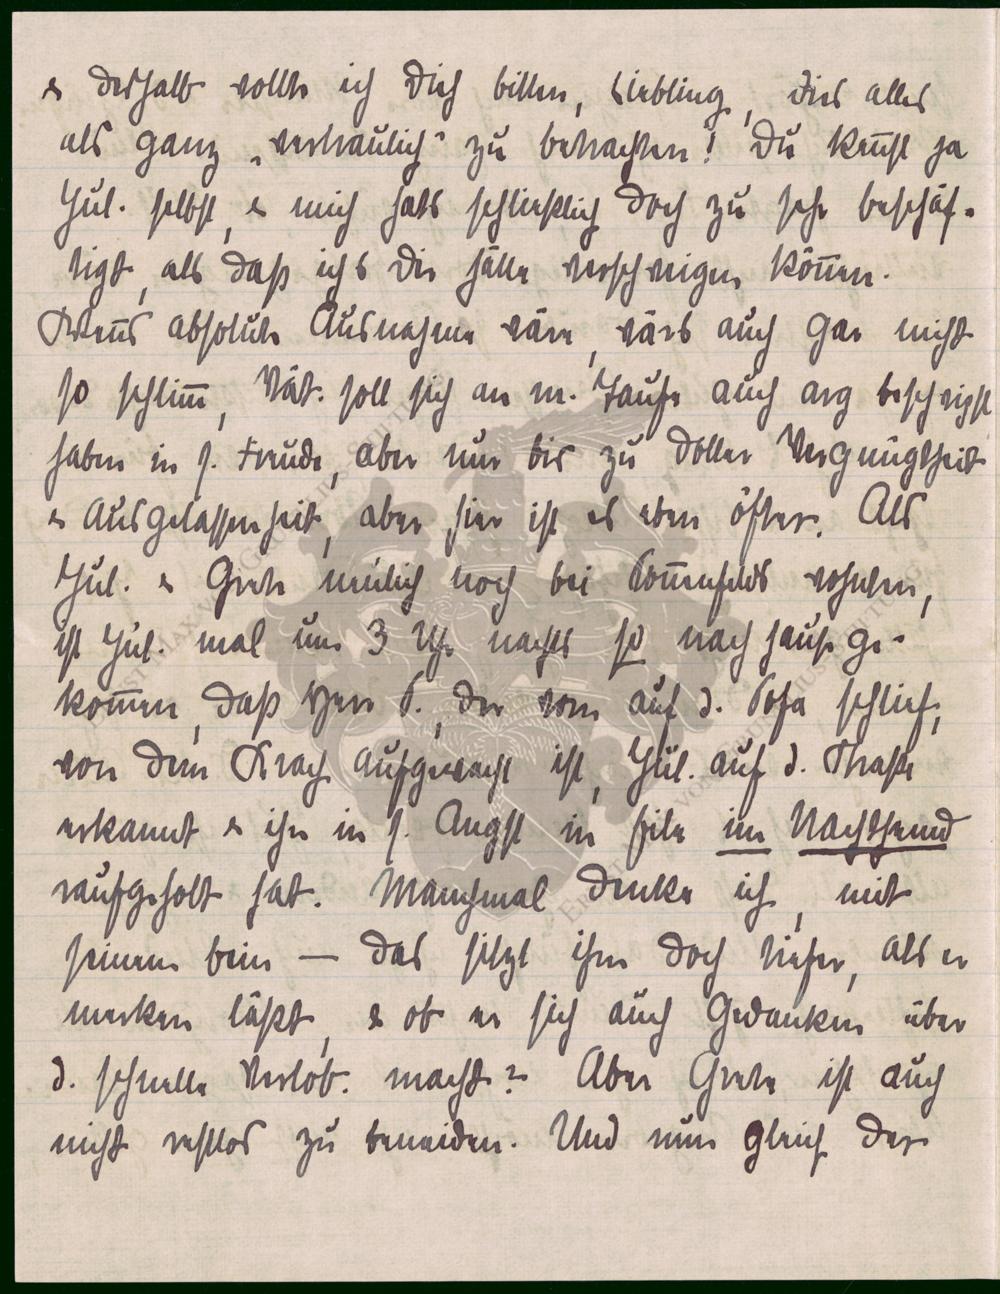 & deshalb wollte ich Dich bitten, Liebling, dies alles
als ganz „vertraulich“ zu betrachten! Du kennst ja
Jul. selbst, & mich hats schließlich doch zu sehr beschäf-
tigt, als daß ichs Dir hätte verschweigen können.
Wenns absolute Ausnahme wäre, wärs auch gar nicht
so schlimm, Vat. soll sich an m. Taufe auch arg beschwipst
haben in s. Freude, aber nur bis zu doller Vergnügtheit
& Ausgelassenheit, aber hier ist es eben öfter. Als
Jul. & Grete neulich noch bei wohnten,
ist Jul. mal um 3 Uhr nachts so nach Hause ge-
kommen, daß Herr S., der vorn auf d. Sofa schlief,
von dem Krach aufgewacht ist, Jul. auf d. Straße
erkannt & ihn in s. Angst in Eile im Nachthemd
raufgeholt hat. Manchmal denke ich, mit
seinem Bein — das sitzt ihm doch tiefer, als er
merken läßt, & ob er sich auch Gedanken über
d. schnelle Verlob. macht? Aber Grete ist auch
nicht restlos zu beneiden. Und nun gleich der